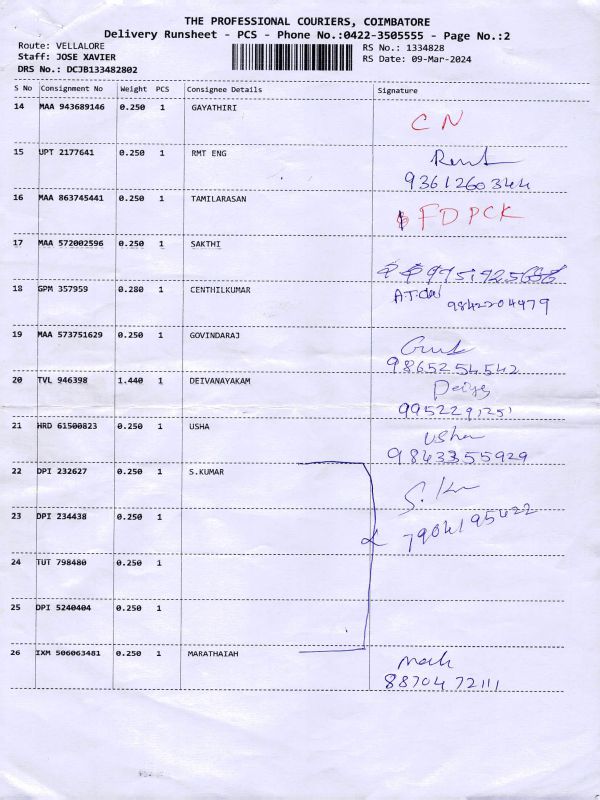 THE PROFESSIONAL COURIERS, COIMBATORE
Delivery Runsheet - PCS - Phone No.:0422-3505555 - Page No.:2
Route: VELLALORE RS No.: 1334828
Staff: JOSE XAVIER RS Date: 09-Mar-2024
DRS No.: DCJB133482802
S No Consignment No Weight PCS Consignee Details Signature
14 MAA 943689146 0.250 1 GAYATHIRI CN
15 UPT 2177641 0.250 1 RMT ENG
9361260344
16 MAA 863745441 0.250 1 TAMILARASAN FDPCK
17 MAA 572002596 0.250 1 SAKTHI
18 GPM 357959 0.280 1 CENTHILKUMAR
9842204479
19 MAA 573751629 0.250 1 GOVINDARAJ
9865254542
20 TVL 946398 1.440 1 DEIVANAYAKAM
9952291251
21 HRD 61500823 0.250 1 USHA usha
9843355929
22 DPI 232627 0.250 1 S.KUMAR
23 DPI 234438 0.250 1 7904195422
24 TUT 798480 0.250 1
25 DPI 5240404 0.250 1
26 IXM 506063481 0.250 1 MARATHAIAH
8870472111